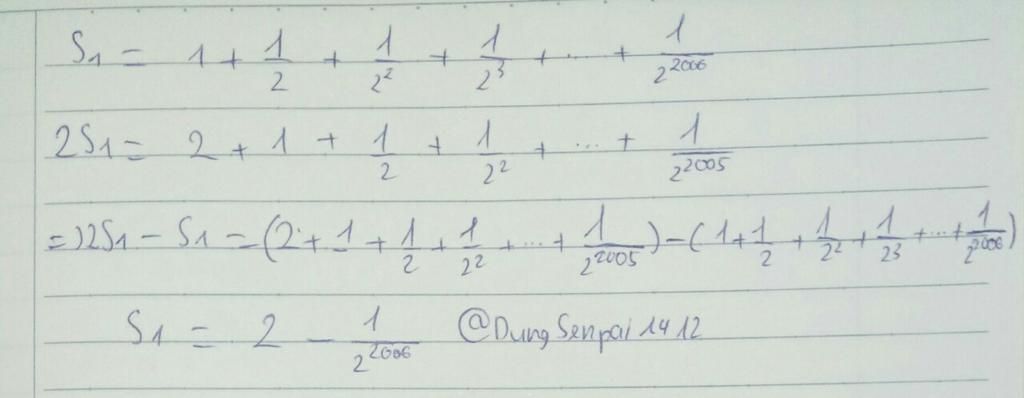 S₁ = 1 + 1/2 + 1/2² + 1/2³ + ... + 1/2²⁰⁰⁶
2S₁ = 2 + 1 + 1/2 + 1/2² + ... + 1/2²⁰⁰⁵
=) 2S₁ - S₁ = (2 + 1 + 1/2 + 1/2² + ... + 1/2²⁰⁰⁵) - (1 + 1/2 + 1/2² + 1/2³ + ... + 1/2²⁰⁰⁶)
S₁ = 2 - 1/2²⁰⁰⁶ @DungSenpai1412